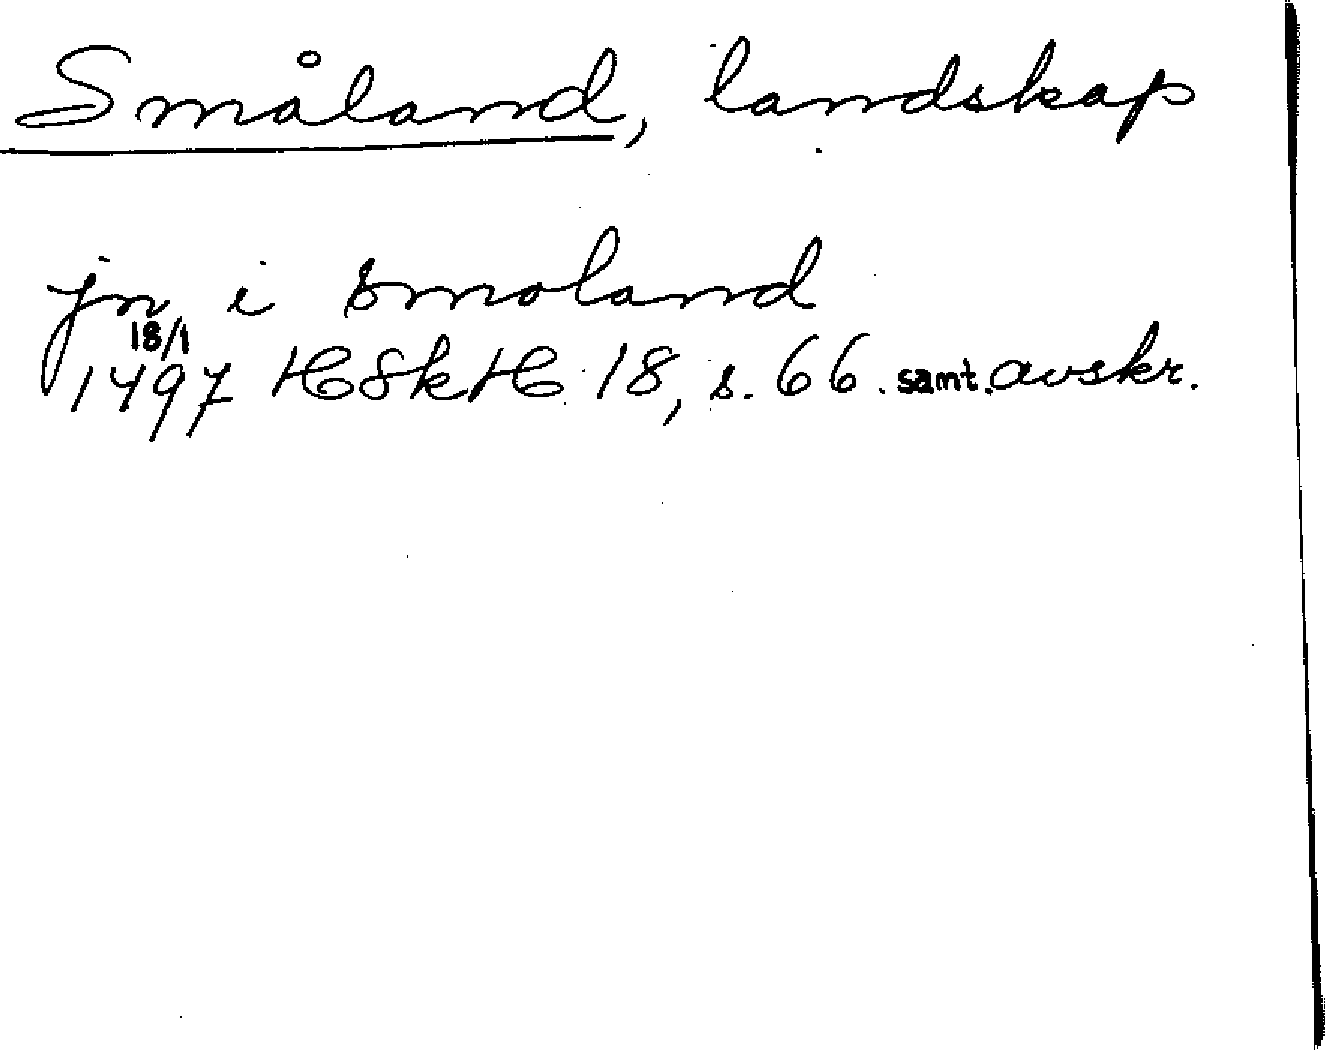 Småland, landskap
jn i smoland
18/1
1497 HSkH 18, s. 66. samt. avskr.